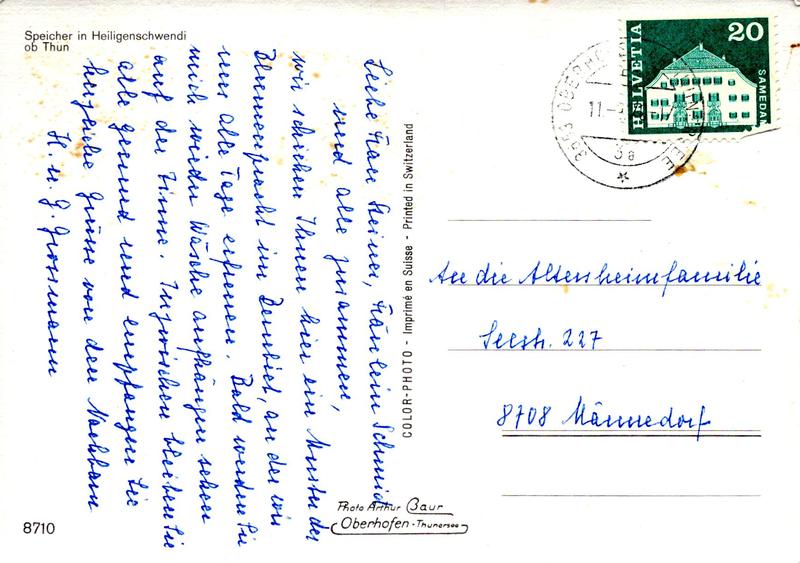 Speicher in Heiligenschwendi
ob Thun
Liebe Frau Steiner, Fräulein Schmid
und alle zusammen,
wir schicken Ihnen hier ein Muster der
Blumenpracht im Bernbiet, an der wir
uns alle Tage erfreuen. Bald werden Sie
mich wieder Wäsche aufhängen sehen
auf der Zinne. Inzwischen bleiben Sie
alle gesund und empfangen Sie
herzliche Grüsse von den Nachbarn
H. u. G. Grossmann
8710
COLOR-PHOTO - Imprimé en Suisse - Printed in Switzerland
Photo Arthur Baur
Oberhofen - Thunersee
HELVETIA
20
SAMEDAN
3653 OBERHOFEN
11.
3a
An die Altersheimfamilie
Seestr. 227
8708 Männedorf